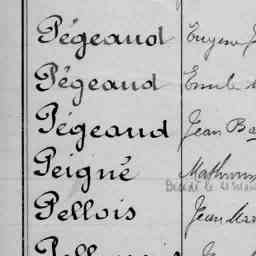 Pégeaud Eugène
Pégeaud Emile
Pégeaud Jean Ba
Peigné Mathurin
Décédé le
Pellois Jean Mar